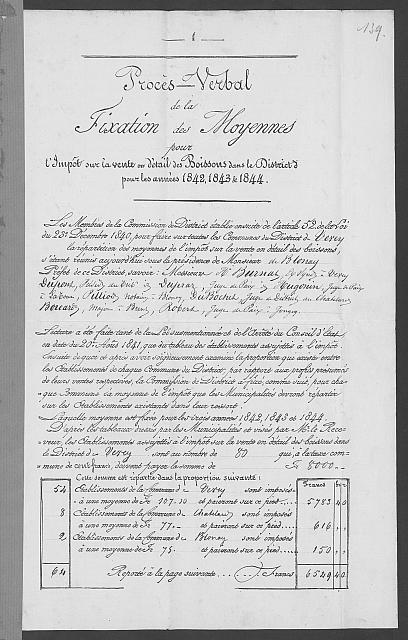 1
139.
Procès-Verbal
de la
Fixation des Moyennes
pour
l'Impôt sur la vente en détail des Boissons dans le District d
pour les années 1842, 1843 & 1844.
Les Membres de la Commission de District établie ensuite de l'article 52 de la Loi
du 23e Décembre 1840, pour fixer sur toutes les Communes du District de Vevey
la répartition des moyennes de l'impôt sur la vente en détail des boissons
s'étant réunis aujourd'hui sous la présidence de Monsieur de Blonay
Préfet de ce District, savoir: Messieurs
Dupont, Juge de Paix
Pilliod, notaire à Blonay, DuBochet, Juge au District, au Chatelard
Borcard, Robert, Juge de Paix à Jongny.
Lecture a été faite tant de la Loi susmentionnée et de l'Arrêté du Conseil d'Etat
en date du 20e Août 1841, que du tableau des établissements assujettis à l'impôt.
Ensuite de quoi et après avoir soigneusement examiné la proportion qui existe entre
les Etablissements de chaque Commune du District, par rapport aux profits présumés
de leurs ventes respectives, la Commission de District a fixé, comme suit, pour cha-
que Commune la moyenne de l'impôt que les Municipalités devront répartir
sur les Etablissements existants dans leur ressort.
Laquelle moyenne est fixée pour les trois années 1842, 1843 et 1844.
D'après les tableaux dressés par les Municipalités et visés par Mr le Rece-
veur, les Etablissements assujettis à l'impôt sur la vente en détail des boissons dans
le District de Vevey sont au nombre de 80 qui, à la taxe com-
mune de cent francs, doivent payer la somme de Fr 8000.-
Cette somme est répartie dans la proportion suivante:
Francs
54 Etablissements de la Commune de Vevey sont imposés
à une moyenne de Fr 107.10 et paieront sur ce pied 5783 40
8 Etablissements de la Commune de Chatelard sont imposés
à une moyenne de Fr 77.- et paieront sur ce pied 616 "
2 Etablissements de la Commune de Blonay sont imposés
à une moyenne de Fr 75.- et paieront sur ce pied 150 "
64 Reporté à la page suivante Francs 6549 40